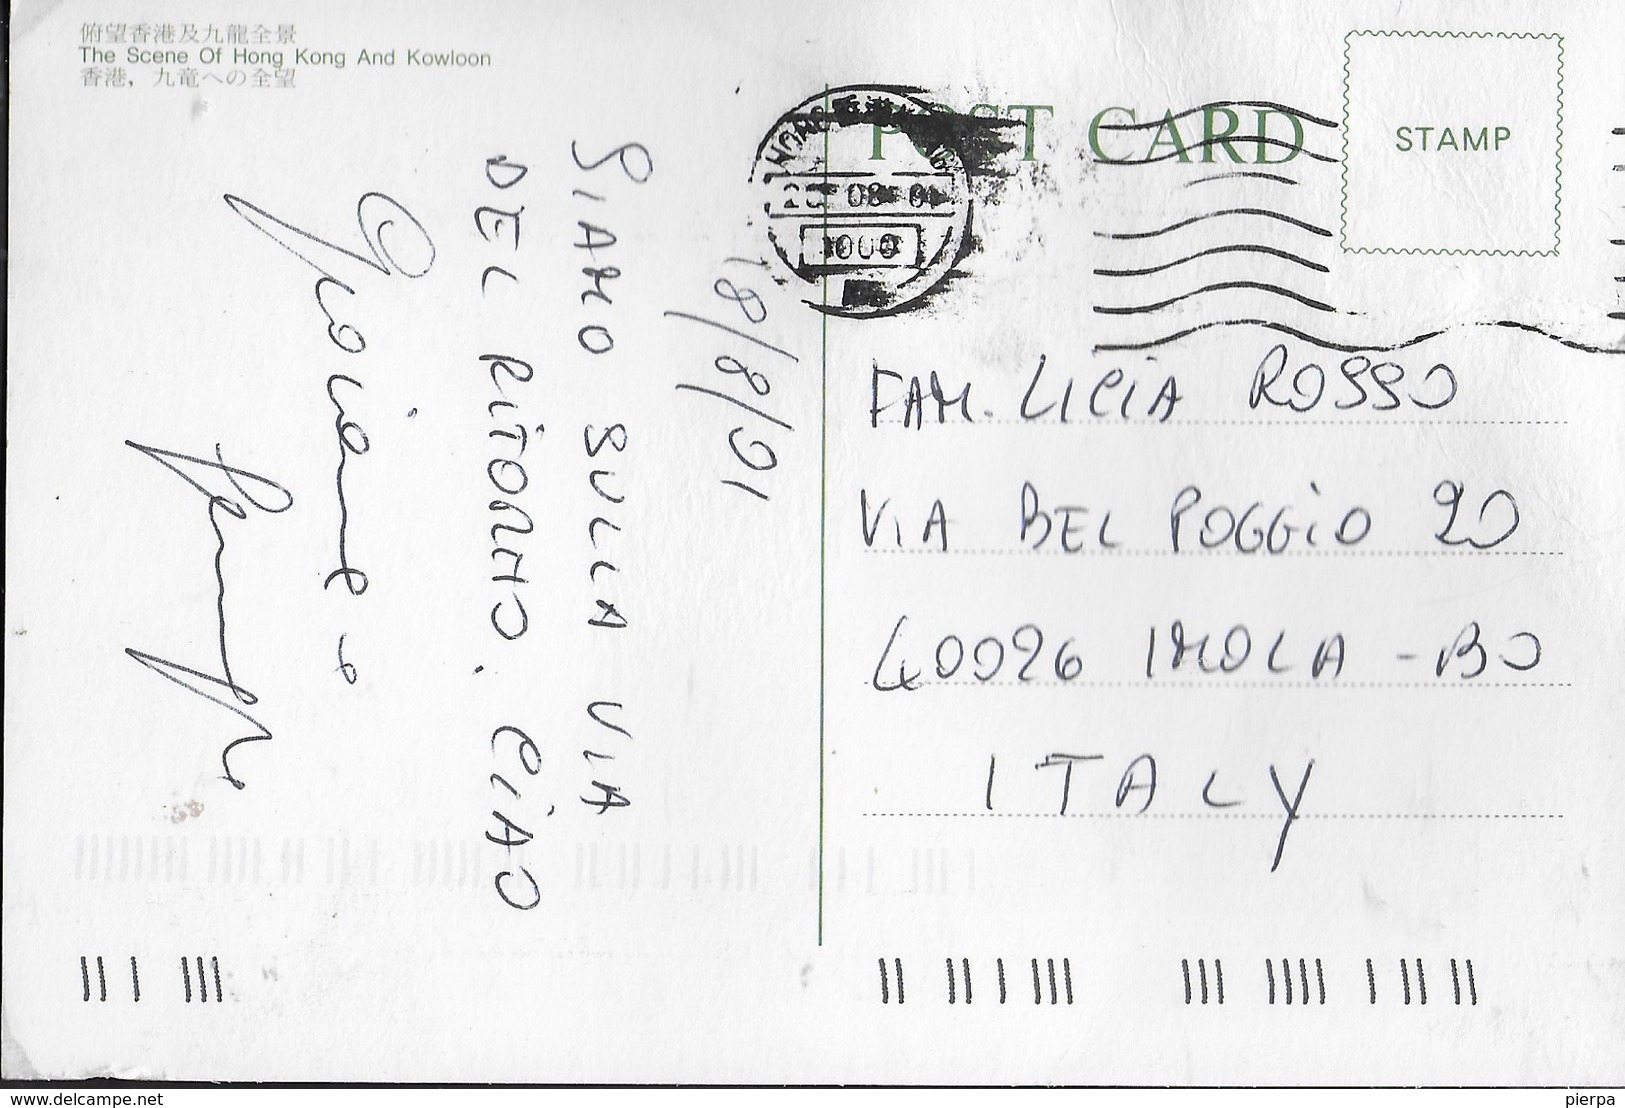 俯望香港及九龍全景
The Scene Of Hong Kong And Kowloon
香港，九竜への全望
POST CARD
STAMP
HONG KONG
08 01
1000
18/8/01
SIAMO SULLA VIA
DEL RITORNO. CIAO
FAM. LICIA ROSSO
VIA BEL POGGIO 20
40026 IMOLA - BO
ITALY
www.delcampe.net
pierpa